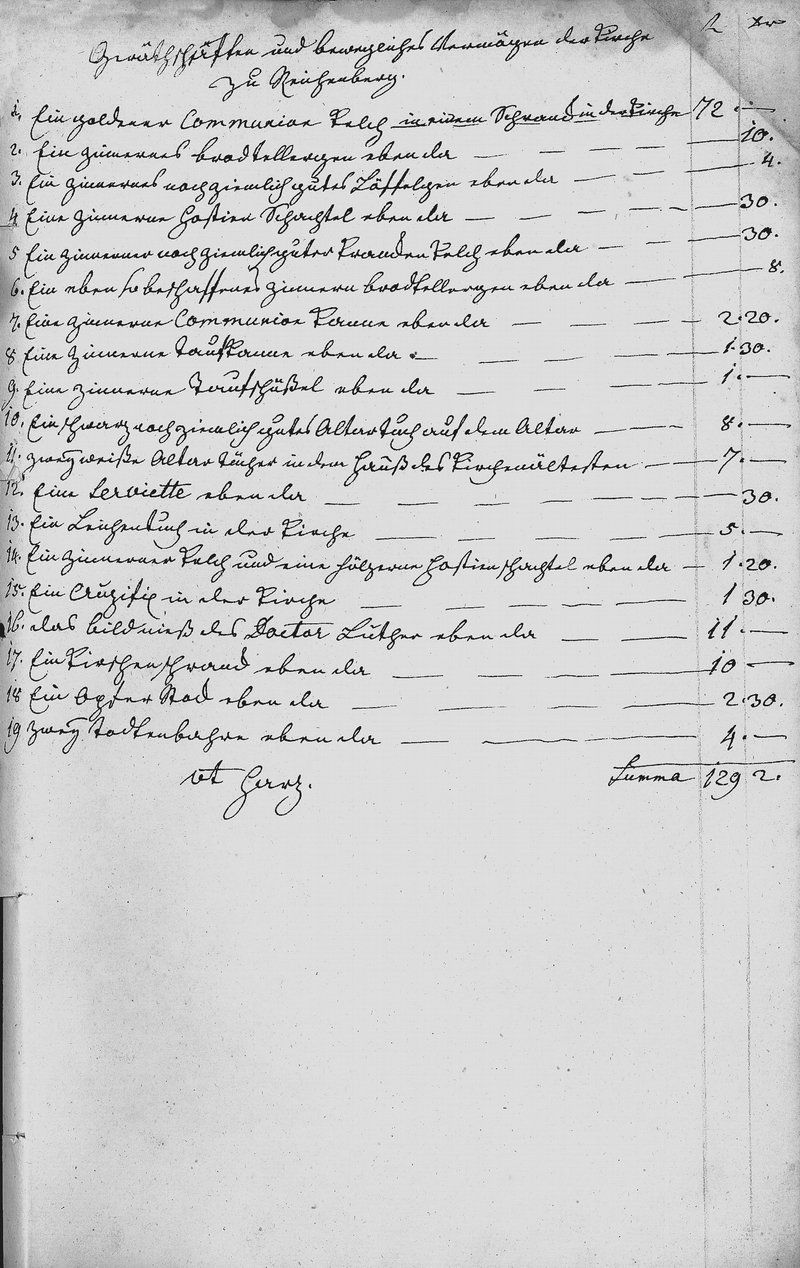 fl xr
Geräthschäften und bewegliches Vermögen der Kirche
zu Reichenberg.
1. Ein goldener Communion Kelch in einem Schrank in der Kirche 72 . —
2. Ein zinnernes brodtellergen eben da — — — — 10.
3. Ein zinnernes noch ziemlich gutes Löffelgen eben da — — — — 4.
4 Eine zinnerne Hostien Schachtel eben da — — — — — 30.
5 Ein zinnerner noch ziemlich guter Kranken Kelch eben da — — — 30.
6. Ein eben so beschaffenes zinnern brodtellergen eben da — — — 8.
7. Eine zinnerne Communion Kanne eben da — — — — 2. 20.
8 Eine zinnerne Taufkanne eben da . — — — — 1. 30.
9. Eine zinnerne Taufschüßel eben da — — — — 1. —
10. Ein schwarz noch ziemlich gutes Altar Tuch auf dem Altar — — 8. —
11. zwey weiße Altar Tücher in dem Hauß des Kirchenältesten — — 7. —
12. Eine Serviette eben da — — — — — — 30.
13. Ein Leichentuch in der Kirche — — — — — 5. —
14. Ein zinnerner Kelch und eine hölzerne Hostienschachtel eben da — 1. 20.
15. Ein Cruzifix in der Kirche — — — — — 1 30.
16. das bildniß des Doctor Luther eben da — — — 11 —
17. Ein Kirchenschrank eben da — — — — — 10 —
18 Ein Opfer Stock eben da — — — — — 2. 30.
19 zwey Todtenbahre eben da — — — — 4. —
vt Harz. Summa 129 2.